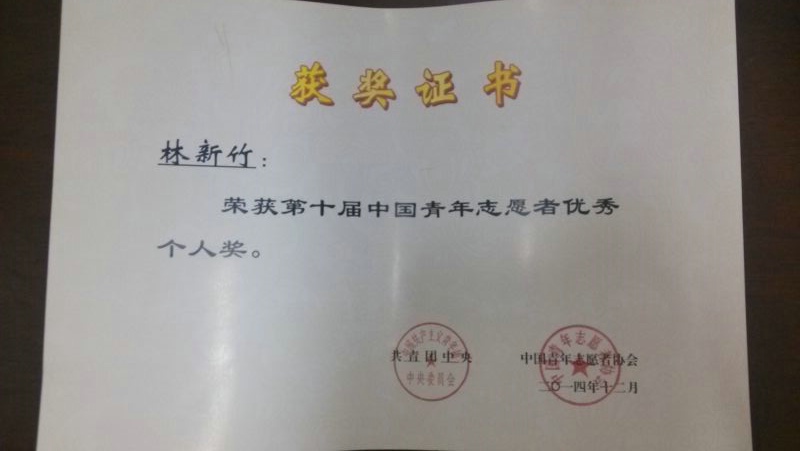 获奖证书
林新竹：
荣获第十届中国青年志愿者优秀
个人奖。
共青团中央 中国青年志愿者协会
中央委员会
二〇一四年十二月